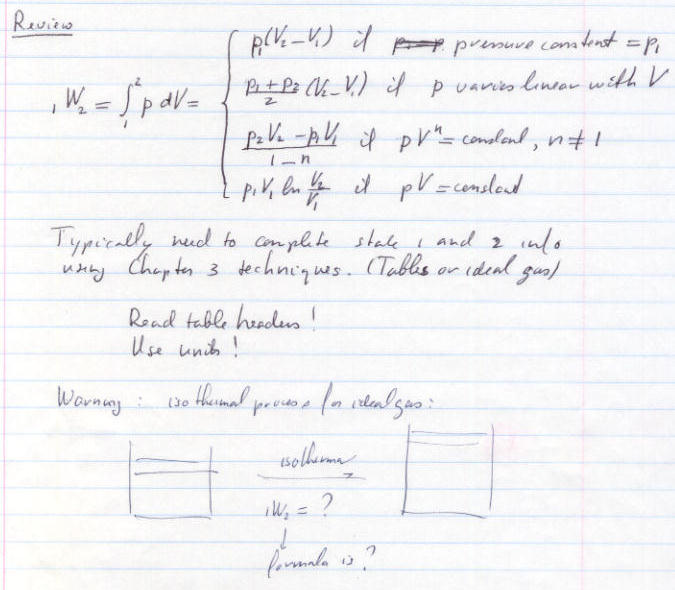 Review
₁W₂ = ∫₁² p dV = { p₁(V₂ – V₁) if pressure constant = p₁
p₁ + p₂ / 2 (V₂ – V₁) if p varies linear with V
p₂V₂ – p₁V₁ / 1 – n if pVⁿ = constant, n ≠ 1
p₁V₁ ln V₂/V₁ if pV = constant
Typically need to complete state 1 and 2 info
using Chapter 3 techniques. (Tables or ideal gas)
Read table headers!
Use units!
Warning : isothermal process for ideal gas:
isothermal
₁W₂ = ?
↓
formula is ?